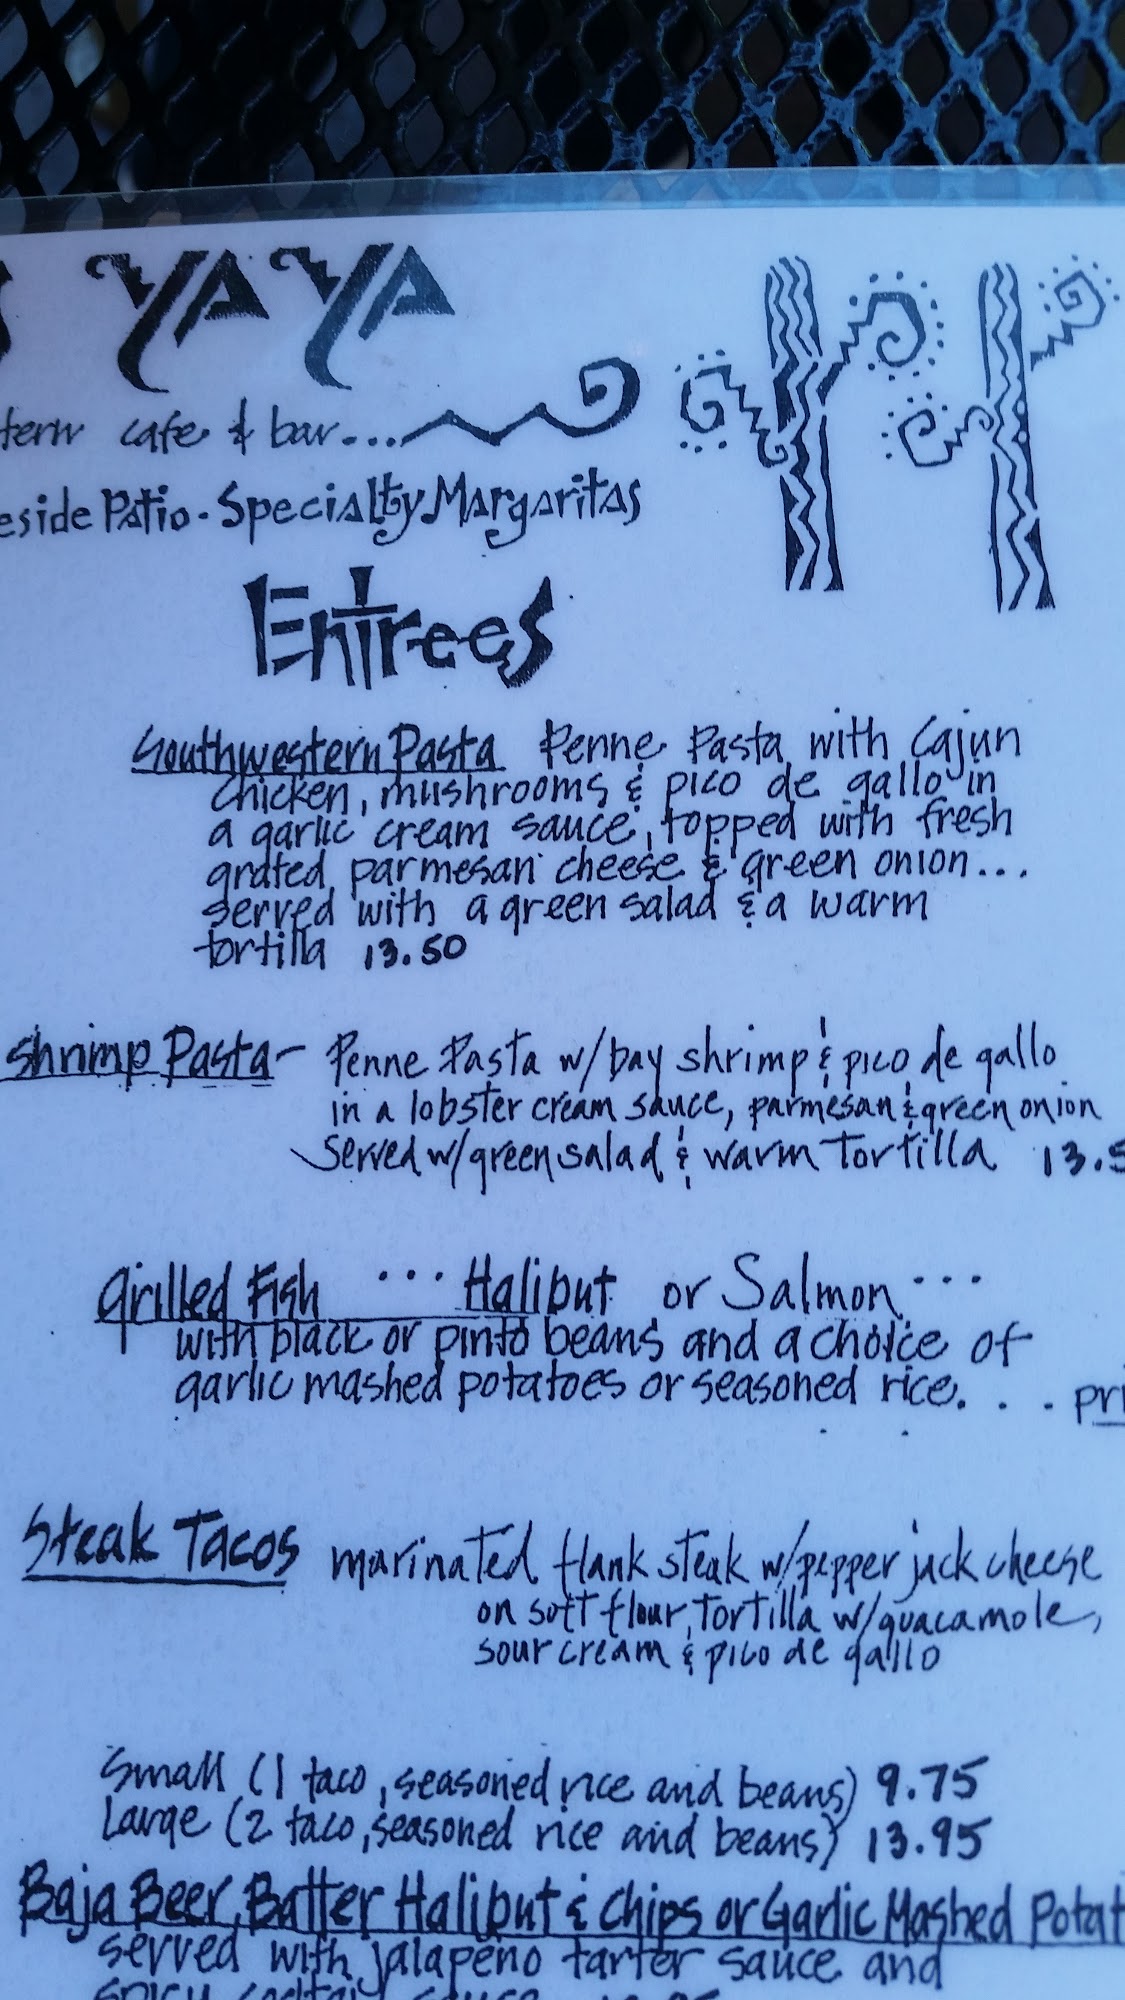 YA YA
tern cafe & bar...
eside Patio - Specialty Margaritas
Entrees
Southwestern Pasta Penne Pasta with Cajun
chicken, mushrooms & pico de gallo in
a garlic cream sauce, topped with fresh
grated parmesan cheese & green onion...
served with a green salad & a warm
tortilla 13.50
Shrimp Pasta- Penne Pasta w/bay shrimp & pico de gallo
in a lobster cream sauce, parmesan & green onion
served w/green salad & warm tortilla 13.5
Grilled Fish ... Halibut or Salmon ...
with black or pinto beans and a choice of
garlic mashed potatoes or seasoned rice. . . . pri
Steak Tacos marinated flank steak w/pepper jack cheese
on soft flour tortilla w/guacamole,
sour cream & pico de gallo
Small (1 taco, seasoned rice and beans) 9.75
Large (2 taco, seasoned rice and beans) 13.95
Baja Beer Batter Halibut & Chips or Garlic Mashed Potat
served with jalapeno tarter sauce and
spicy cocktail sauce